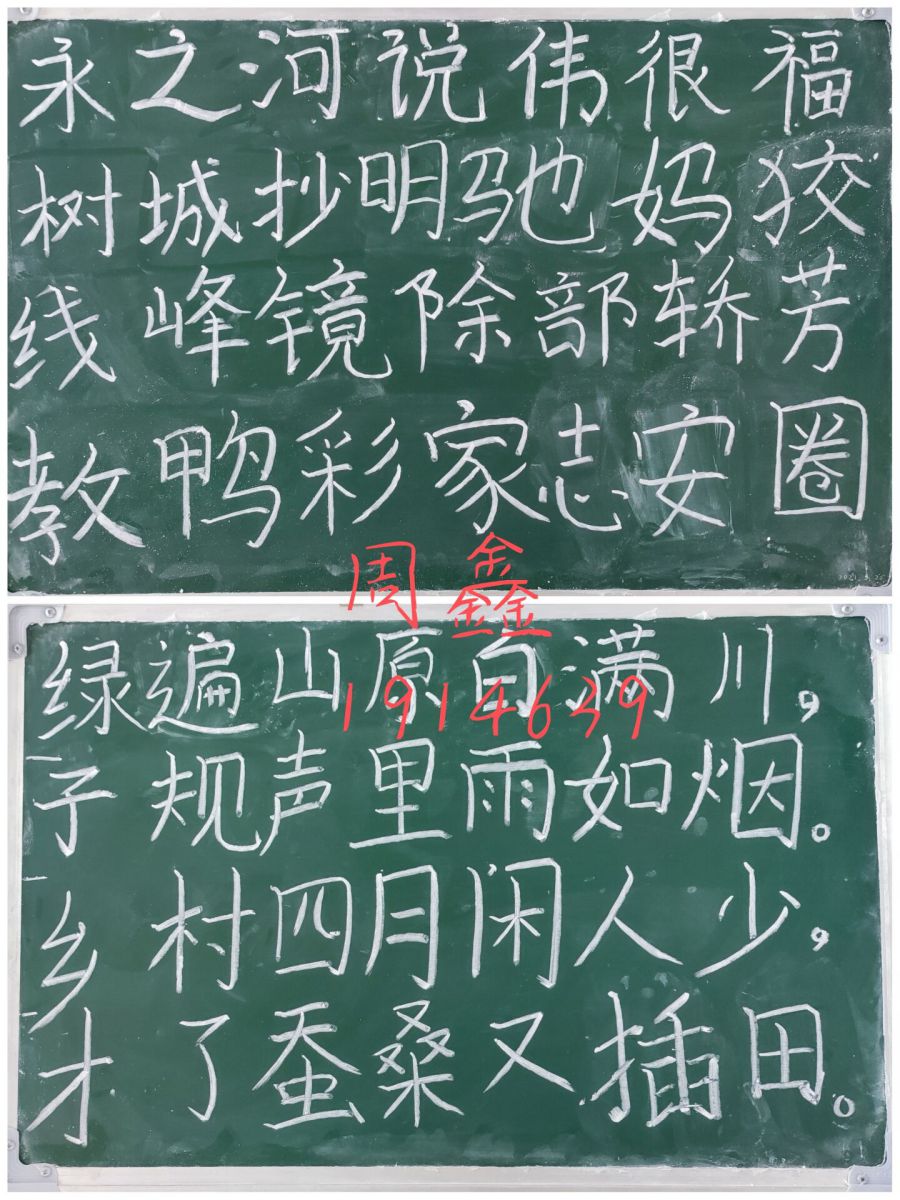 永之河说伟很福
树城抄明驰妈狡
线峰镜除部轿芳
教鸭彩家志安圈
周鑫
绿遍山原白满川，
1914639
子规声里雨如烟。
乡村四月闲人少，
才了蚕桑又插田。